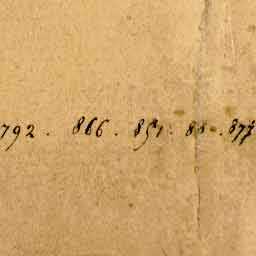 792 . 866 . 851 . 88 . 877